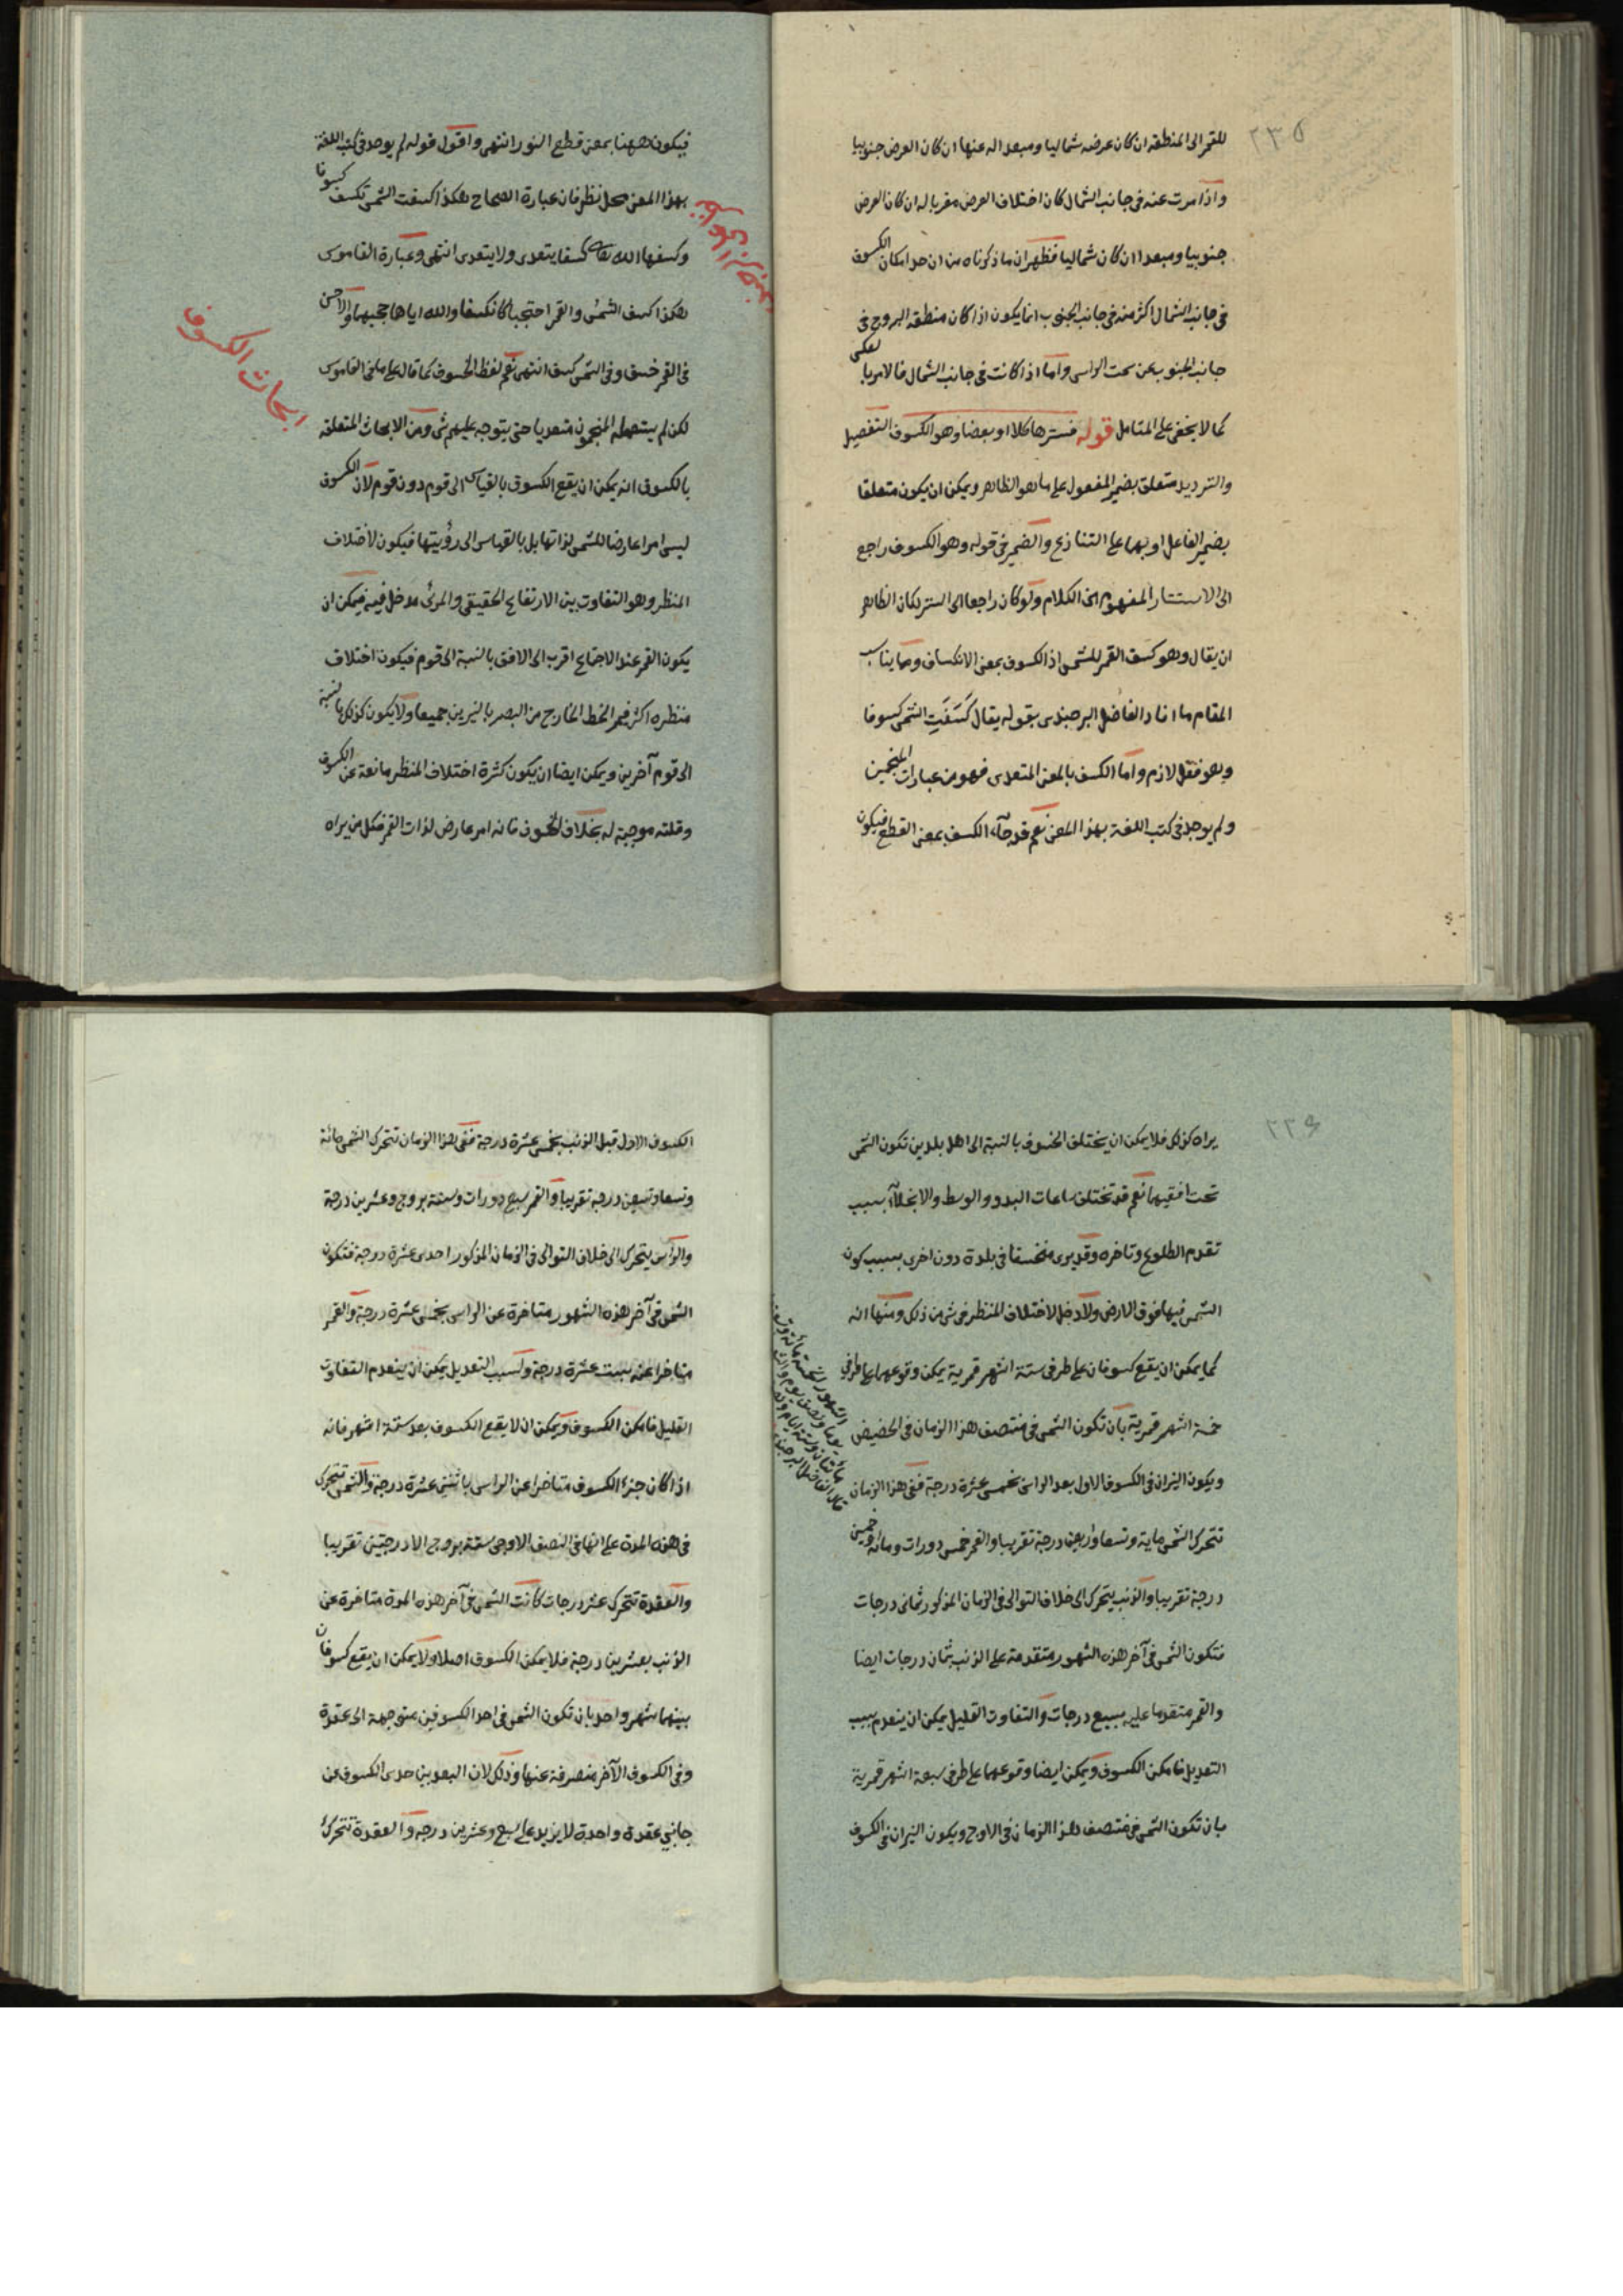 ٢٣٥
للقمر الى المنطقه ان كان عرضه شماليا ومبعدا له عنها ان كان العرض جنوبيا
واذا مرت عنه فى جانب الشمال كان اختلاف العرض مقربا له ان كان العرض
جنوبيا ومبعدا ان كان شماليا فظهر ان ما ذكرناه من ان حد امكان الكسوف
فى جانب الشمال اكثر منه فى جانب الجنوب انما يكون اذا كان منطقه البروج فى
جانب الجنوب عن سمت الراس واما اذا كانت فى جانب الشمال فالامر بالعكس
كما لا يخفى على المتامل قوله فسترها كلا او بعضا وهو الكسوف التفصيل
والترديد متعلق بضمير المفعول على ما هو الظاهر ويمكن ان يكون متعلقا
بضمير الفاعل او بهما على التنازع والضمير فى قوله وهو الكسوف راجع
الى الاستتار المفهوم من الكلام ولو كان راجعا الى الستر لكان الظاهر
ان يقال وهو كسف القمر للشمس اذ الكسوف بمعنى الانكساف ومما يناسب
المقام ما افاد الفاضل البرجندى بقوله يقال كَسَفَتِ الشمس كسوفا
وهو فعل لازم واما الكسف بالمعنى المتعدى فهو من عبارات المنجمين
ولم يوجد فى كتب اللغة بهذا المعنى نعم قد جآء الكسف بمعنى القطع فيكون
فيكون ههنا بمعنى قطع النور انتهى واقول قوله لم يوجد فى كتب اللغة
بهذا المعنى محل نظر فان عبارة الصحاح هكذا كسفت الشمس تكسف كسوفا
وكسفها الله تعالى كسفا يتعدى ولا يتعدى انتهى وعبارة القاموس
هكذا كسف الشمس والقمر احتجبا كانكسفا والله اياهما حجبهما والاحسن
فى القمر خسف وفى الشمس كسفت انتهى نعم لفظ الخسوف كما قال على ما فى القاموس
لكن لم يستعمله المنجمون متعديا حتى يتوجه عليهم شى ومن الابحاث المتعلقه
بالكسوف انه يمكن ان يقع الكسوف بالقياس الى قوم دون قوم لان الكسوف
ليس امرا عارضا للشمس لذاتها بل بالقياس الى رؤيتها فيكون لاختلاف
المنظر وهو التفاوت بين الارتفاع الحقيقى والمرئى مدخل فيه فيمكن ان
يكون القمر عند الاجتماع اقرب الى الافق بالنسبة الى قوم فيكون اختلاف
منظره اكثر فيمر الخط الخارج من البصر بالنيرين جميعا ولا يكون كذلك بالنسبة
الى قوم آخرين ويمكن ايضا ان يكون كثرة اختلاف المنظر مانعة عن الكسوف
وقلته موجبة له بخلاف الخسوف فانه امر عارض لذات القمر فكل من يراه
ابحاث الكسوف
٢٣٦
يراه كذلك فلا يمكن ان يختلف الخسوف بالنسبة الى اهل بلدين تكون الشمس
تحت افقيهما نعم قد تختلف ساعات البدو والوسط والانجلاء بسبب
تقدم الطلوع وتاخره وقد يرى منخسفا فى بلدة دون اخرى بسبب كون
الشمس فيها فوق الارض ولا دخل لاختلاف المنظر فى شى من ذلك ومنها انه
كما يمكن ان يقع كسوفان على طرفى ستة اشهر قمرية يمكن وقوعهما على طرفى
خمسة اشهر قمرية بان تكون الشمس فى منتصف هذا الزمان فى الحضيض
ويكون النيران فى الكسوف الاول بعد الراس بخمس عشرة درجة ففى هذا الزمان
تتحرك الشمس ماية وتسعا واربعين درجة تقريبا والقمر خمس دورات ومائة وخمسين
درجة تقريبا والذنب يتحرك الى خلاف التوالى فى الزمان المذكور ثمانى درجات
فتكون الشمس فى آخر هذه الشهور متقدمة على الذنب بثمان درجات ايضا
والقمر متقدما عليه بسبع درجات والتفاوت القليل يمكن ان ينعدم بسبب
التعديل فامكن الكسوف ويمكن ايضا وقوعهما على طرفى سبعة اشهر قمرية
بان تكون الشمس فى منتصف هذا الزمان فى الاوج ويكون النيران فى الكسوف
الكسوف الاول قبل الذنب بخمس عشرة درجة ففى هذا الزمان تتحرك الشمس مائة
وتسعا وتسعين درجة تقريبا والقمر سبع دورات وستة بروج وعشرين درجة
والراس يتحرك الى خلاف التوالى فى الزمان المذكور احدى عشرة درجة فتكون
الشمس فى آخر هذه الشهور متاخرة عن الراس بخمس عشرة درجة والقمر
متاخرا عنه بست عشرة درجة وبسبب التعديل يمكن ان ينعدم التفاوت
القليل فامكن الكسوف ويمكن ان لا يقع الكسوف بعد ستة اشهر فانه
اذا كان جزء الكسوف متاخرا عن الراس باثنتى عشرة درجة والشمس تتحرك
فى هذه المدة على انها فى النصف الاوجى ستة بروج الا درجتين تقريبا
والعقدة تتحرك عشر درجات كانت الشمس فى آخر هذه المدة متاخرة عن
الذنب بعشرين درجة فلا يمكن الكسوف اصلا ولا يمكن ان يقع كسوفان
بينهما شهر واحد بان تكون الشمس فى احد الكسوفين متوجهة الى عقدة
وفى الكسوف الآخر منصرفة عنها وذلك لان البعد بين حدى الكسوف عن
جانبى عقدة واحدة لا يزيد على سبع وعشرين درجه والعقدة تتحرك